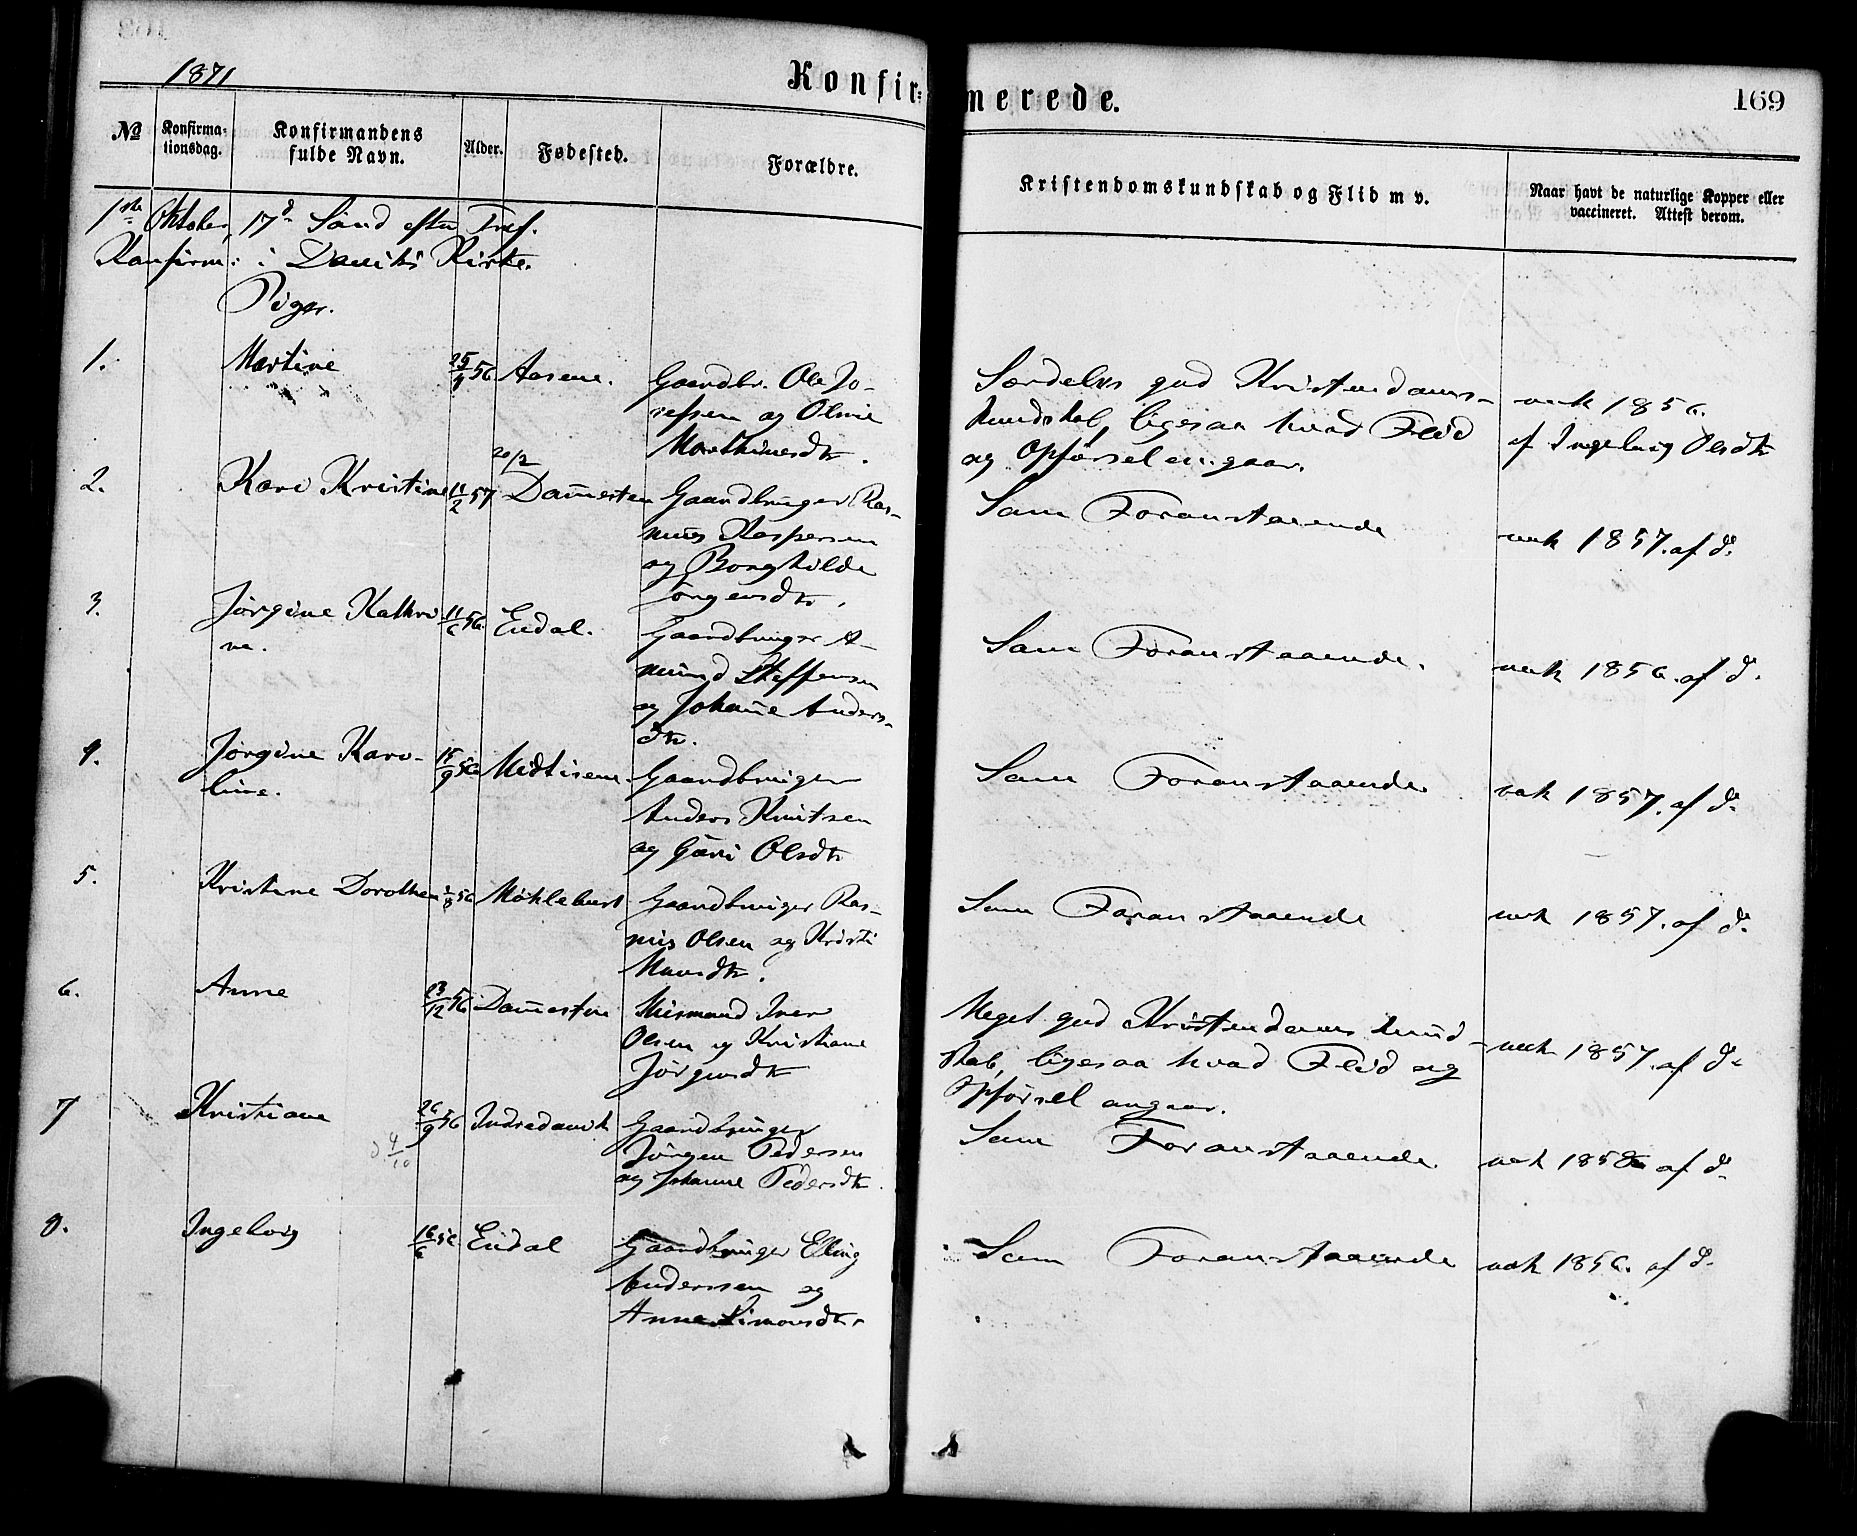 1871
Konfirmerede.
169
№
Konfirmationsdag.
Konfirmandens fulde Navn.
Alder.
Fødested.
Forældre.
Kristendomskundskab og Flid m v.
Naar havt de naturlige Kopper eller vaccineret. Attest derom.
1ste Oktober, 17de Sönd efter Tref.
Konfirm: i Daviks Kirke.
Piger.
1. Martine 25/4 56 Aasene. Gaardbr. Ole Jo-
sefsen og Oline
Marthinesdtr.
Særdeles god Kristendoms-
kundskab, ligesaa hvad Flid
og Opførsel angaar.
vak 1856.
af Ingeborg Olsdtr
20/2
2. Kari Kristine 11/2 57 Dammesten Gaardbruger Ras-
mus Kaspersen
og Borghilde
Jörgensdtr.
Som Foranstaaende
vak 1857. af do.
3. Jørgine Kathri
ne. 11/6 56 Endal. Gaardbruger A-
mund Steffensen
og Johanne Anders-
dtr.
Som Foranstaaende.
vak 1856. af do.
4. Jørgine Karo-
line. 15/9 56 Midtisene Gaardbruger
Anders Knutsen
og Guri Olsdtr
Som Foranstaaende.
vak 1857. af do.
5. Kristine Dorothea /8 56 Møklebust Gaardbruger Ras-
mus Olsen og Kristi
Monsdtr.
Som Foranstaaende
vak 1857. af do.
6. Anne 23/12 56 Dammesten Husmand Iver
Olsen og Kristiane
Jørgensdtr
Meget god Kristendoms kund-
skab, ligesaa hvad Flid og
Opførsel angaar.
vak 1857. af do.
7 Kristiane 26/9 56 Indredavik Gaardbruger
Jörgen Pedersen
og Johanne Pedersdtr.
d. 4/10
Som Foranstaaende
vak 1858 af do.
8. Ingeborg 16/6 56 Endal Gaardbruger Elling
Anderssen og
Anne Simonsdtr.
Som Foranstaaende
vak 1856. af do.